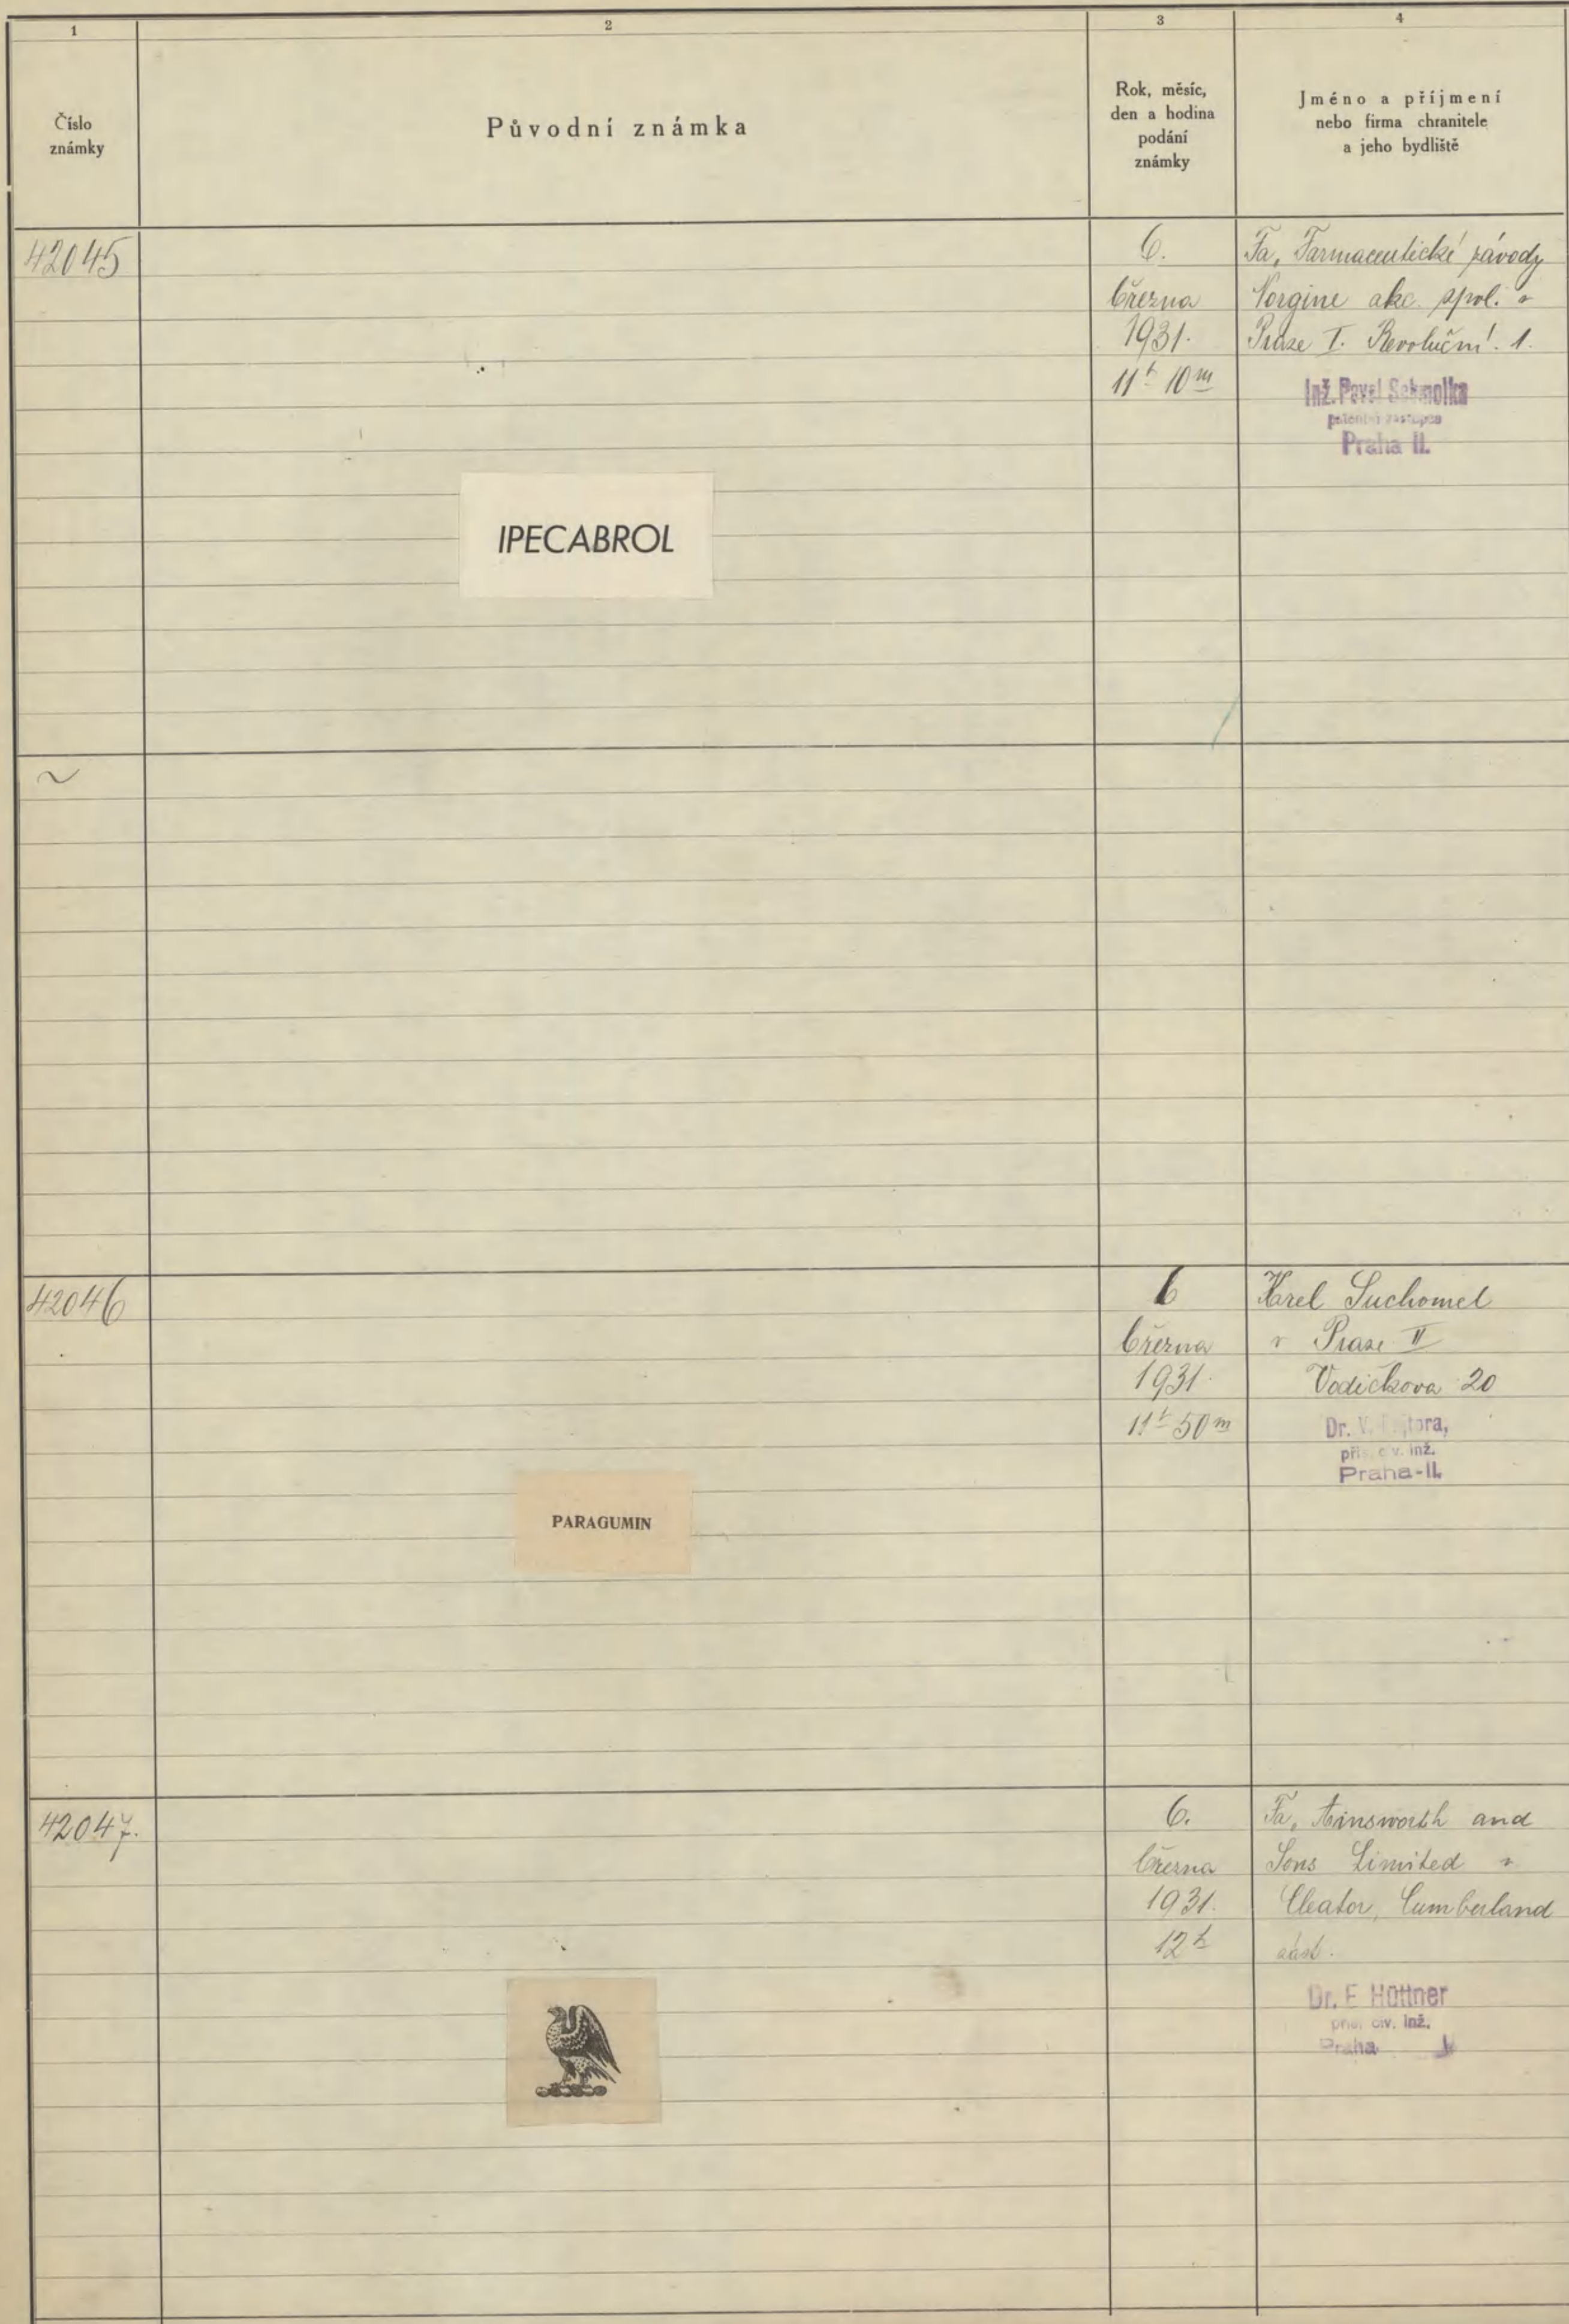 1
2
3
4
Číslo
známky
Původní známka
Rok, měsíc,
den a hodina
podání
známky
Jméno a příjmení
nebo firma chranitele
a jeho bydliště
42045
6.
března
1931.
11h 10m
Fa, Farmaceutické závody
Norgine akc. spol. v
Praze I. Revoluční 1.
Inž. Pavel
patentní zástupce
Praha II.
IPECABROL
42046
6
března
1931.
11h 50m
Karel Suchomel
v Praze II
Vodičkova 20
Dr. V.
civ. inž.
Praha-II.
PARAGUMIN
42047.
6.
března
1931.
12h
Fa, Ainsworth and
Sons Limited v
Cleator, Cumberland
Dr. F. Hüttner
civ. inž.
Praha